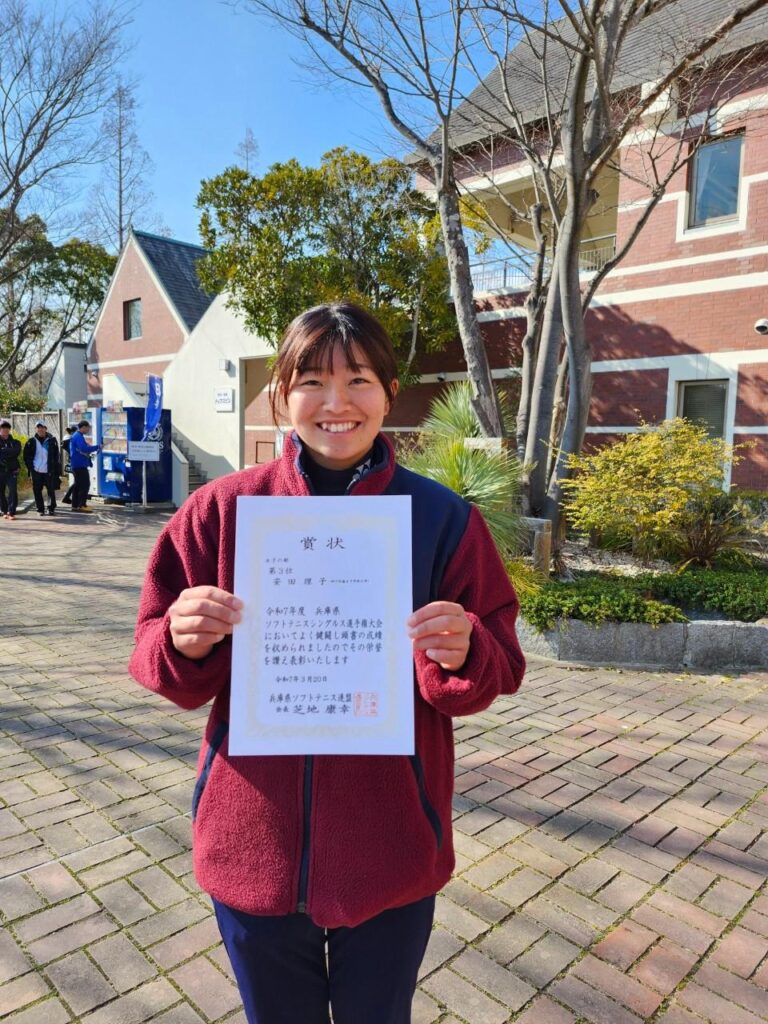 賞状
女子の部
第3位
安田理子
令和7年度 兵庫県
ソフトテニスシングルス選手権大会
においてよく健闘し頭書の成績
を収められましたのでその栄誉
を讃え表彰いたします
令和7年3月20日
兵庫県ソフトテニス連盟
会長 芝地康幸